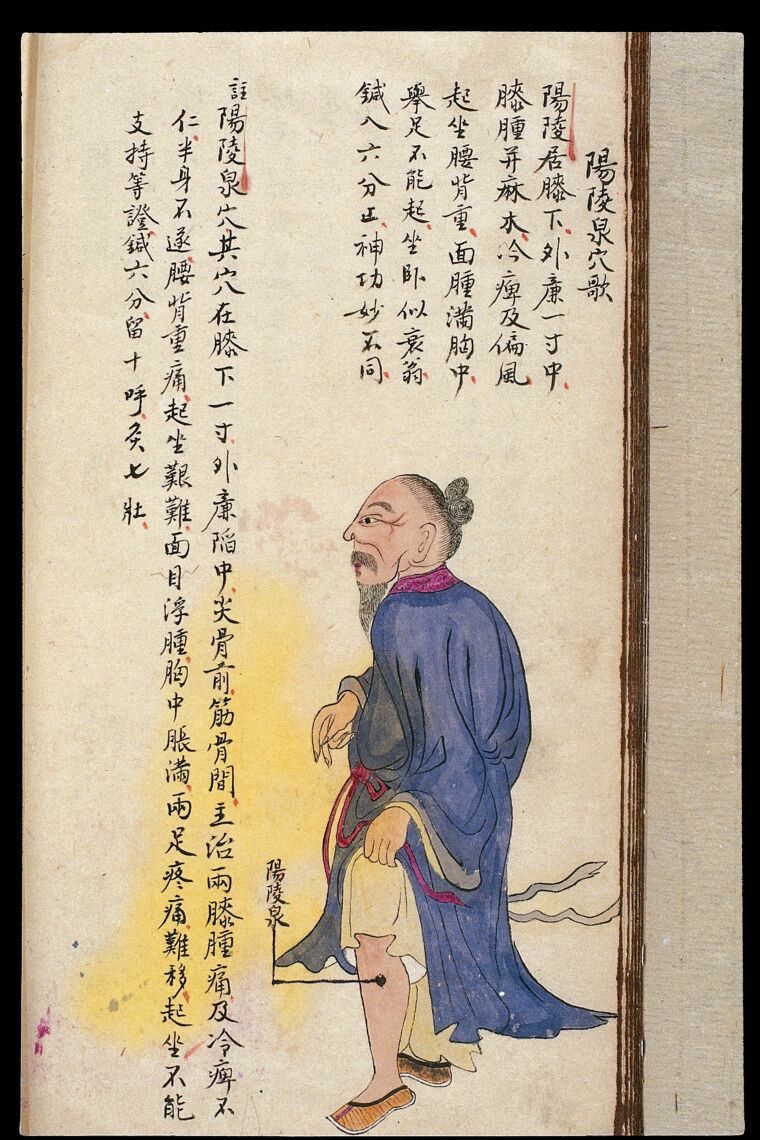 陽陵泉穴歌
陽陵居膝下、外廉一寸中、
膝腫并麻木、冷痺及偏風、
起坐腰背重、面腫滿胸中、
舉足不能起、坐卧似衰翁、
鍼入六分止、神功妙不同、
註陽陵泉穴其穴在膝下一寸、外廉陷中、尖骨前、筋骨間、主治兩膝腫痛、及冷痺不
仁、半身不遂、腰背重痛、起坐艱難、面目浮腫、胸中脹滿、兩足疼痛難移、起坐不能
支持等證、鍼六分、留十呼、灸七壯、
陽陵泉